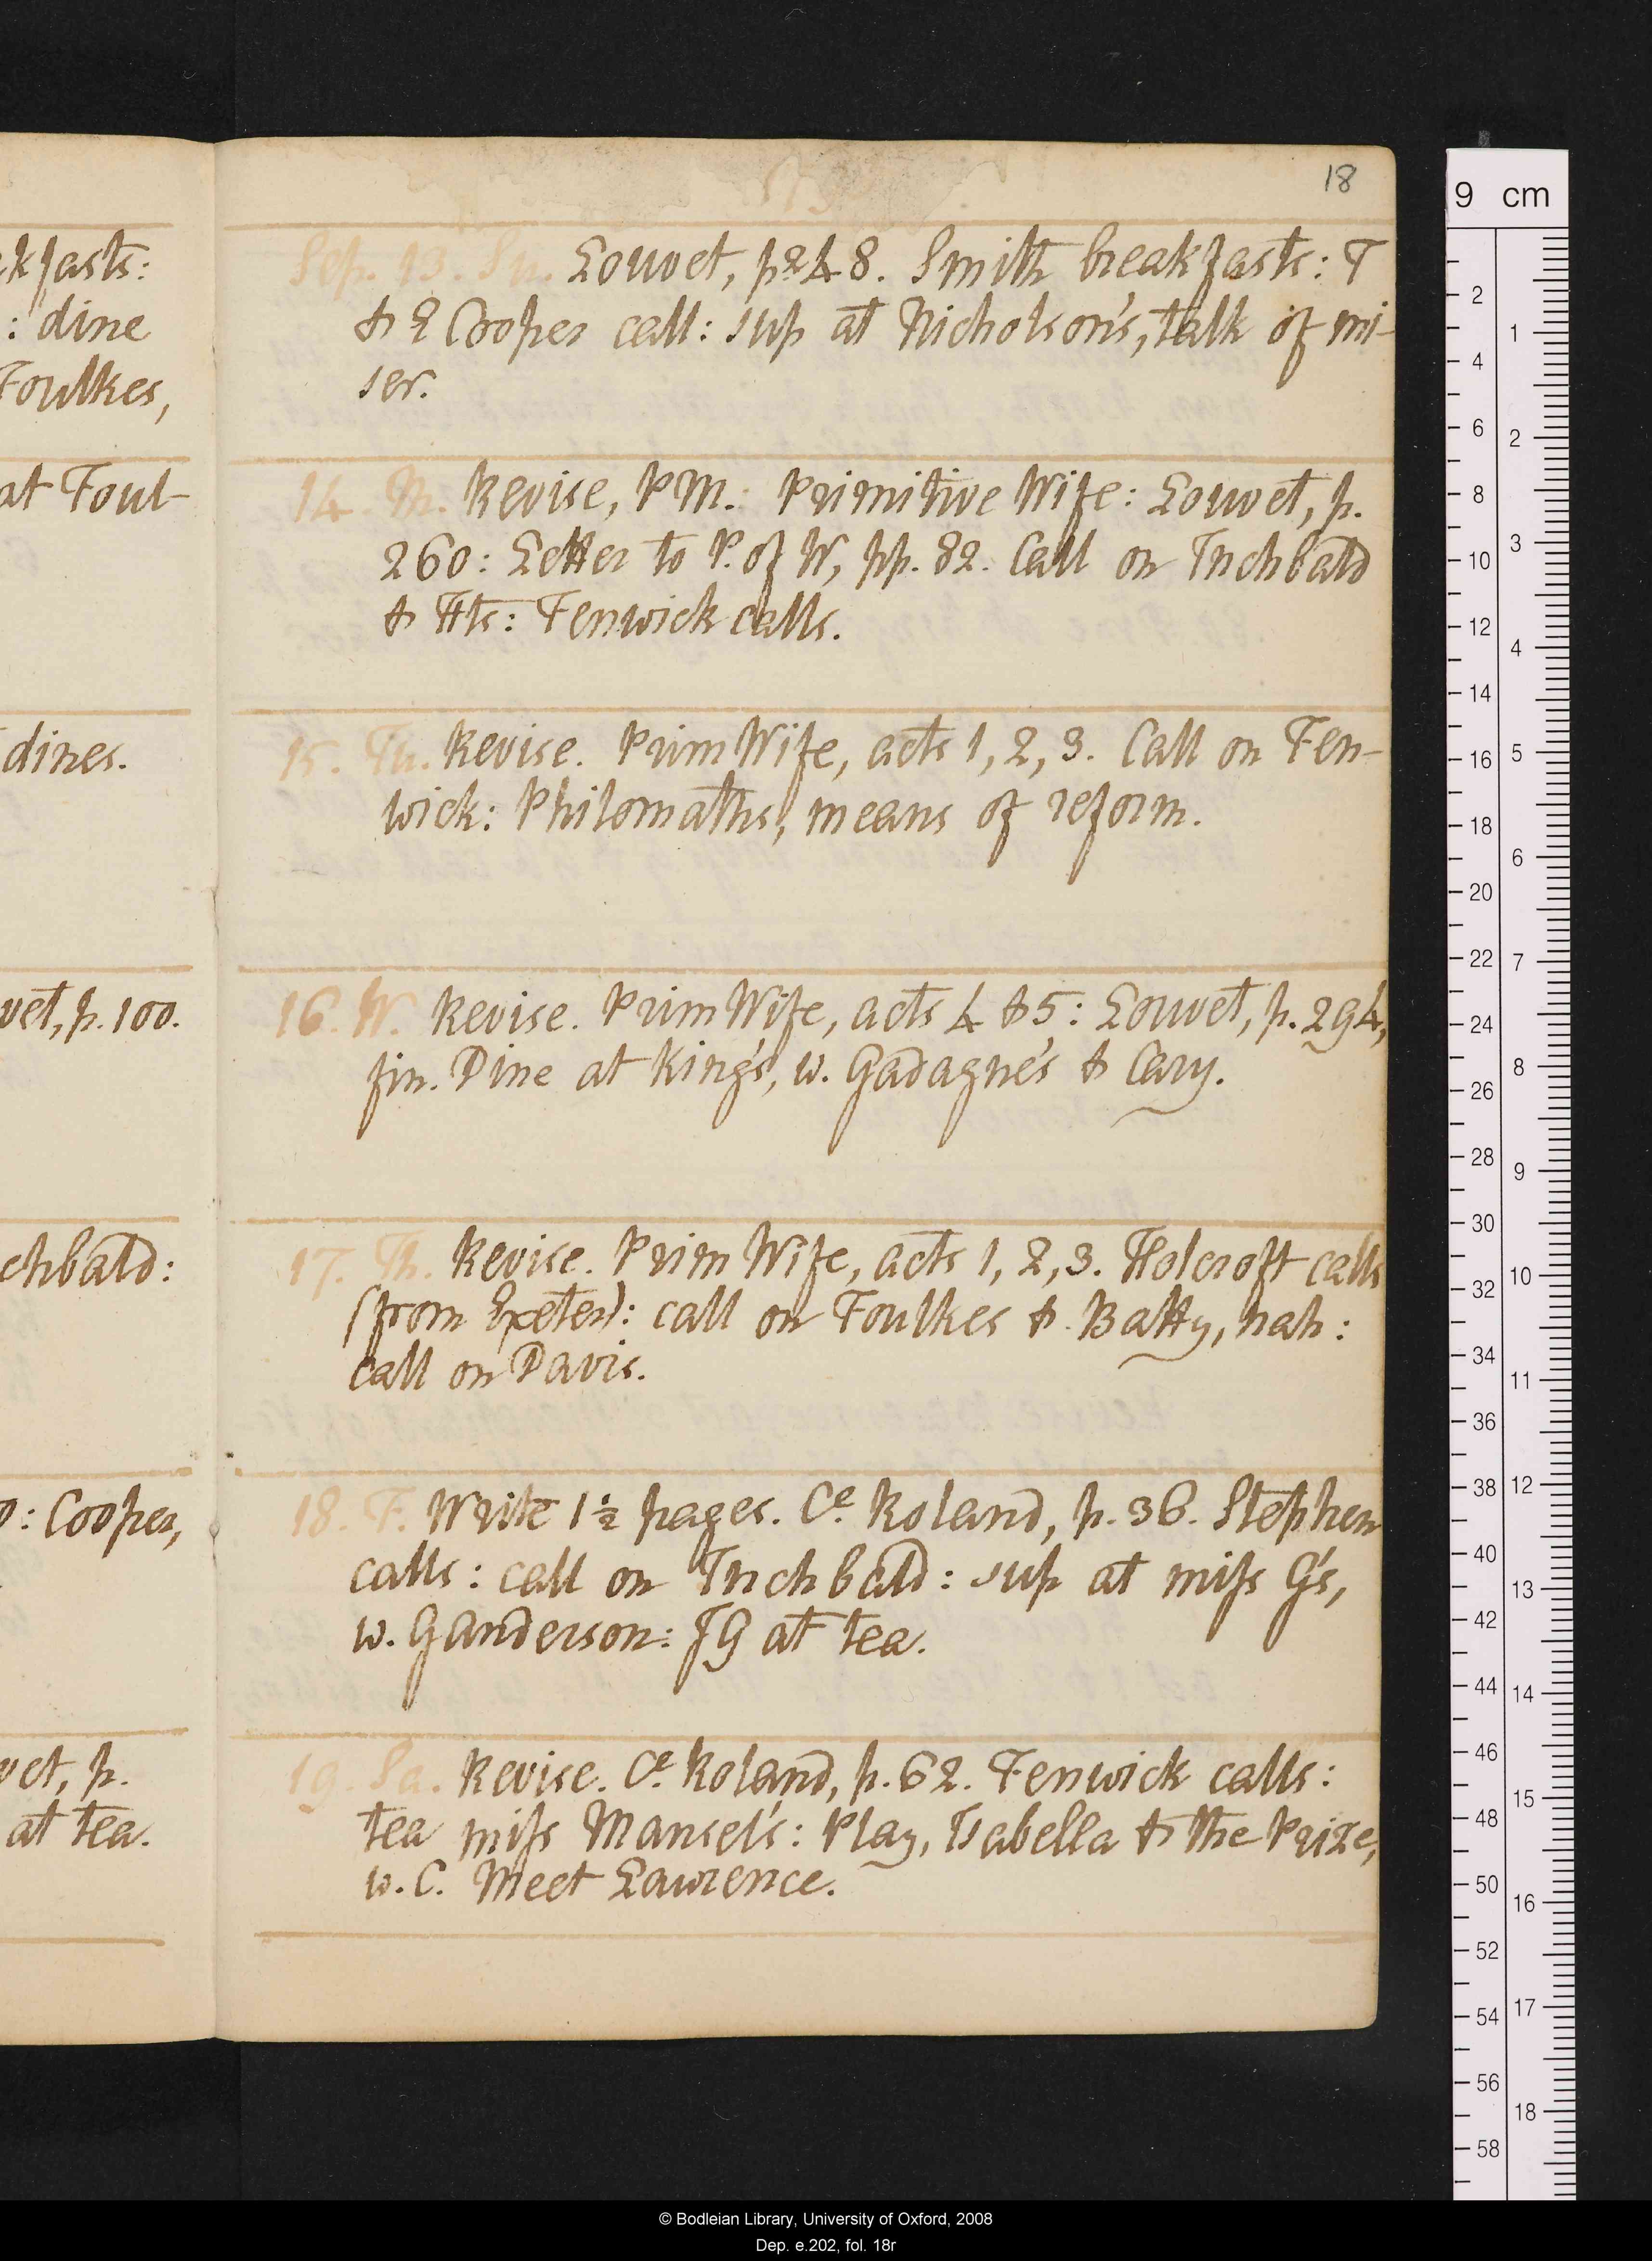 18
kfasts:
: dine
Foulkes,
at Foul-
dines.
vet, p. 100.
chbald:
: Cooper,
vet, p.
at tea.
Sep. 13. Su. Louvet, p 248. Smith breakfasts: T
& E Cooper call: sup at Nicholson's, talk of mi-
ser.
14. M. Revise, PM.: Primitive Wife: Louvet, p.
260: Letter to P. of W, pp. 82. Call on Inchbald
& Hts: Fenwick calls.
15. Tu. Revise. Prim Wife, acts 1, 2, 3. Call on Fen-
wick: Philomaths, means of reform.
16. W. Revise. Prim Wife, acts 4 & 5: Louvet, p. 294,
fin. Dine at King's, w. Gadagne's & Cary.
17. Th. Revise. Prim Wife, acts 1, 2, 3. Holcroft calls
(from Exeter): call on Foulkes & Batty, nah:
call on Davis.
18. F. Write 1½ pages. Ce Roland, p. 36. Stephen
calls: call on Inchbald: sup at miss G's,
w. G anderson: JG at tea.
19. Sa. Revise. Ce Roland, p. 62. Fenwick calls:
tea miss Mansel's: Play, Isabella & the Prize,
w. C. Meet Lawrence.
9 cm
2
4
6
8
10
12
14
16
18
20
22
24
26
28
30
32
34
36
38
40
42
44
46
48
50
52
54
56
58
1
2
3
4
5
6
7
8
9
10
11
12
13
14
15
16
17
18
© Bodleian Library, University of Oxford, 2008
Dep. e.202, fol. 18r